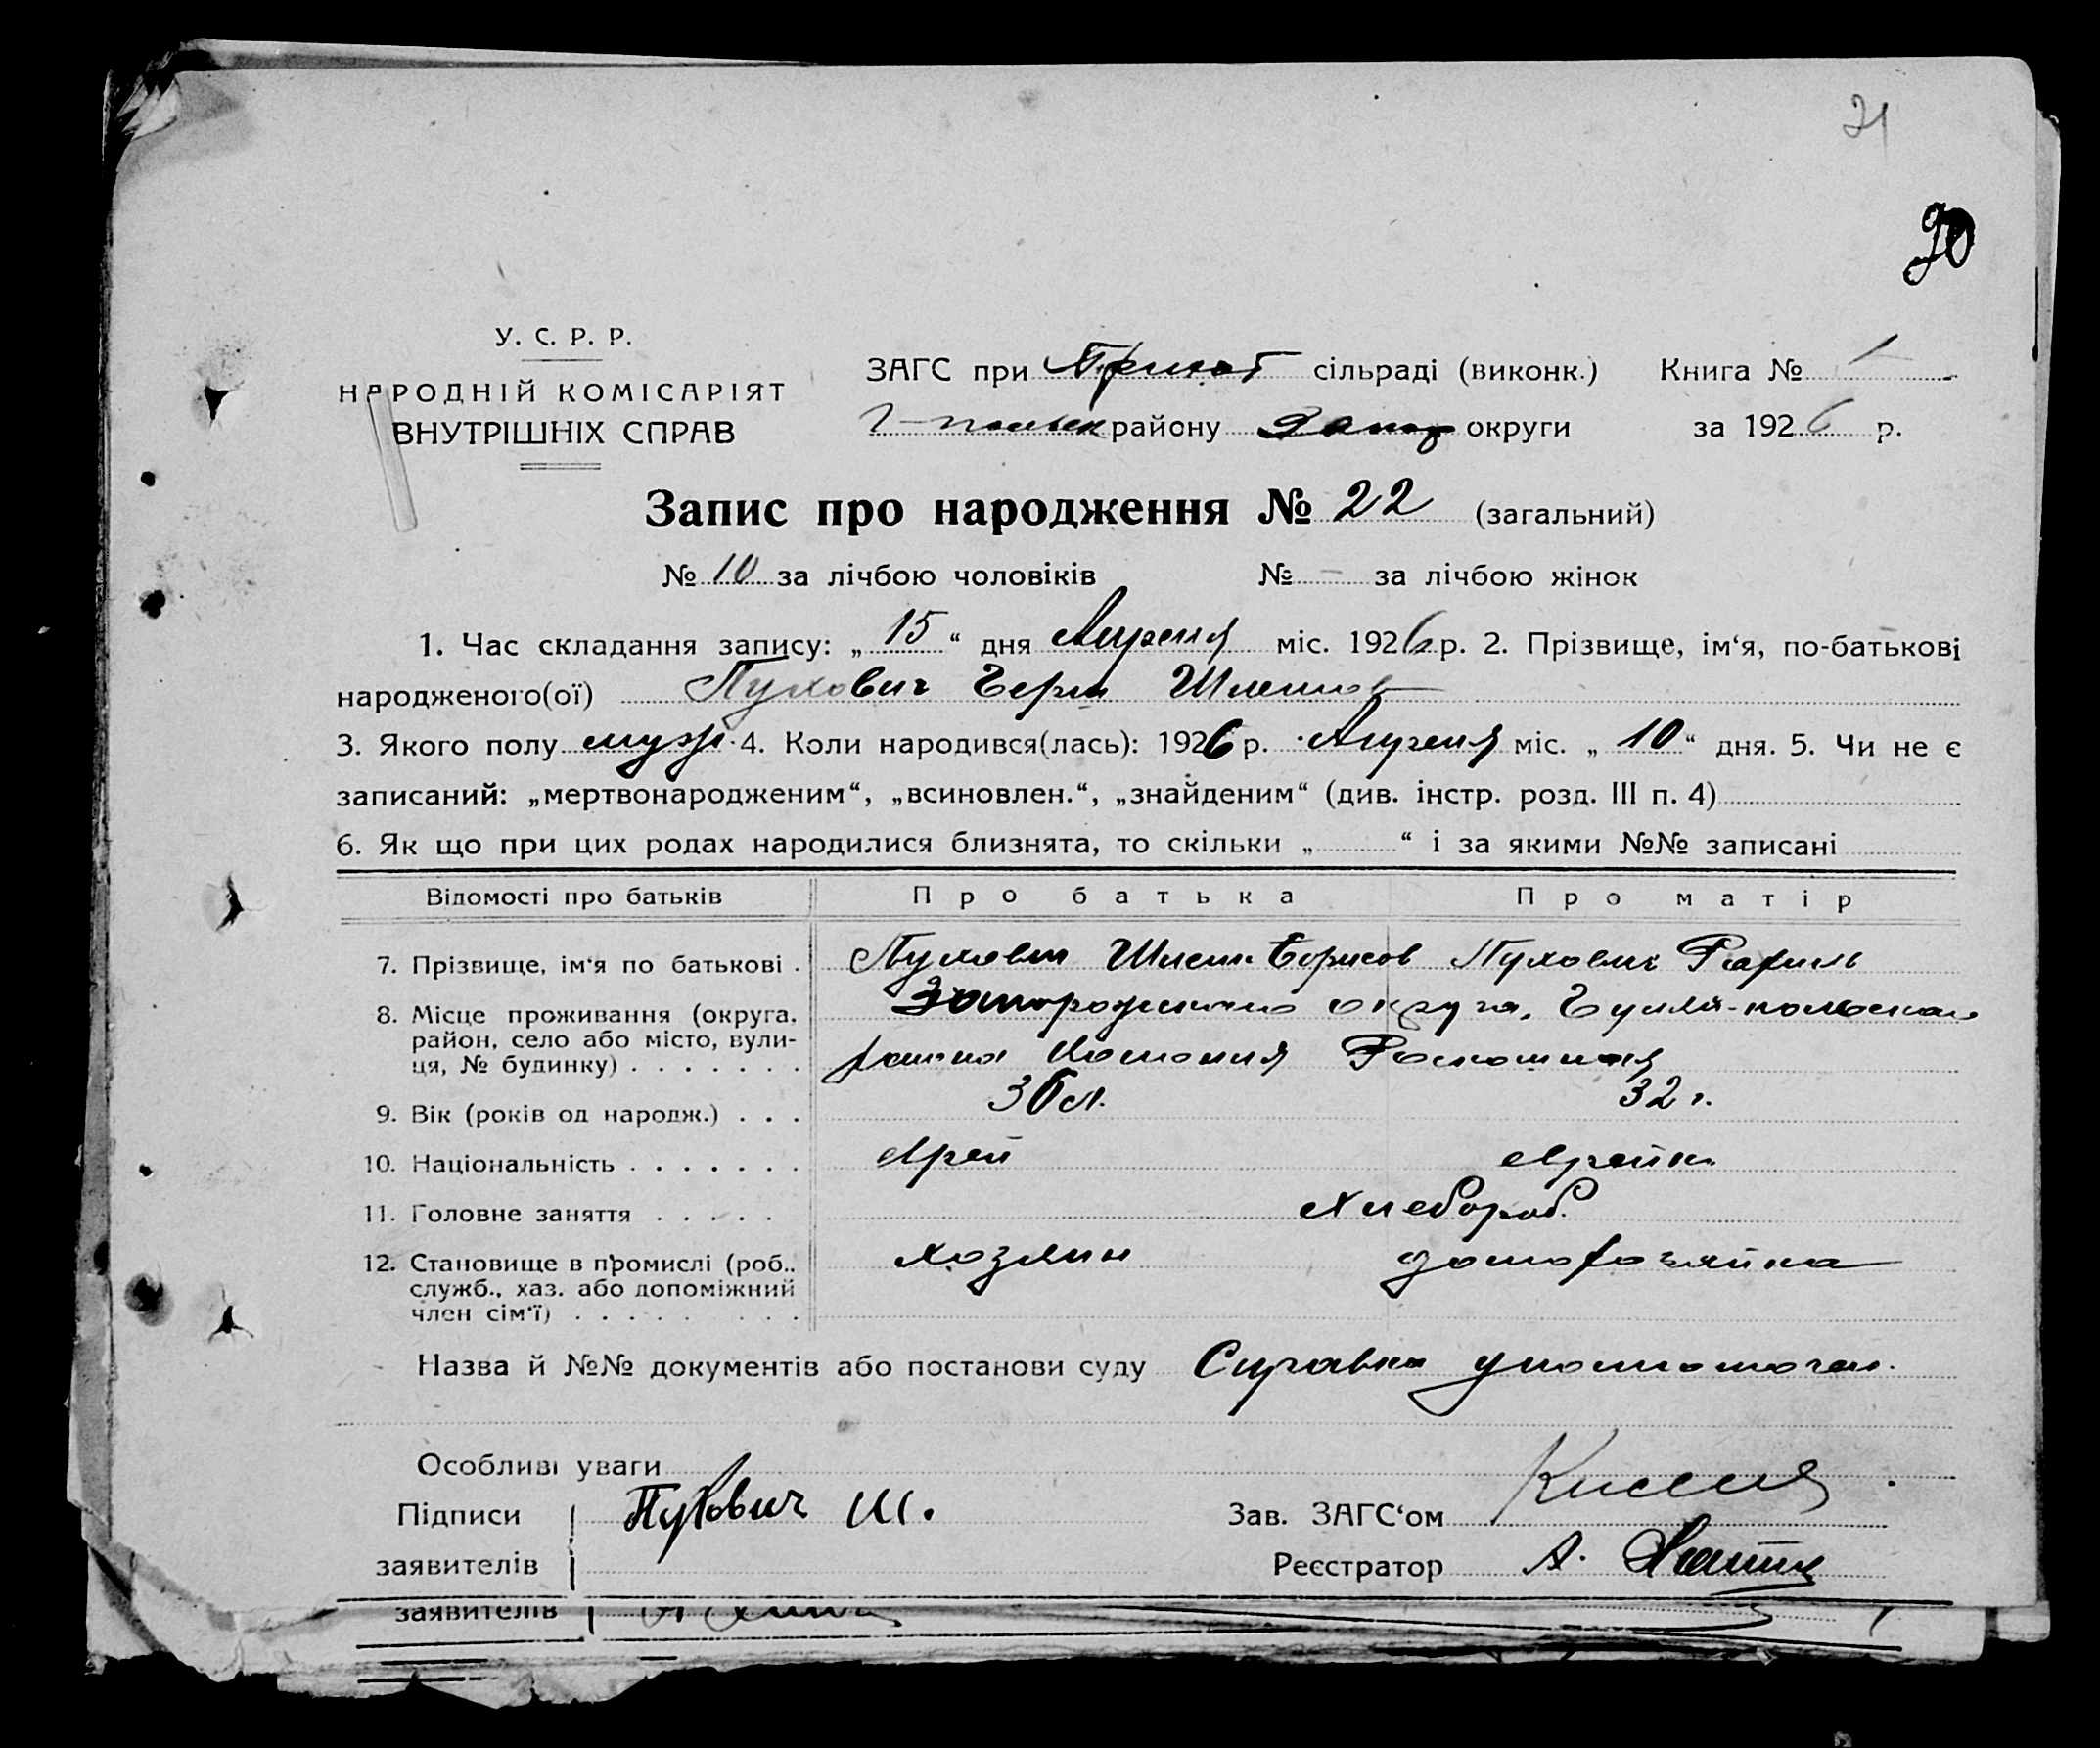 21
90
У. С. Р. Р.
НАРОДНІЙ КОМІСАРІЯТ
ВНУТРІШНІХ СПРАВ
ЗАГС при сільраді (виконк.) Книга № 1
району Запор округи за 1926 р.
Запис про народження № 22 (загальний)
№ 10 за лічбою чоловіків № – за лічбою жінок
1. Час складання запису: „15“ дня Апреля міс. 1926 р. 2. Прізвище, ім‘я, по-батькові
народженого(ої) Пухович Берл Шлемов
3. Якого полу муж. 4. Коли народився(лась): 1926 р. Апреля міс. „10“ дня. 5. Чи не є
записаний: „мертвонародженим“, „всиновлен.“, „знайденим“ (див. інстр. розд. III п. 4)
6. Як що при цих родах народилися близнята, то скільки „ “ і за якими №№ записані
Відомості про батьків Про батька Про матір
7. Прізвище, ім‘я по батькові . Пухович Шлема Борисов Пухович Рахиль
8. Місце проживання (округа, округа, Гуляй-польского
район, село або місто, вули-
ця, № будинку) . . . . . . . района Колония Роскошная
9. Вік (років од народж.) . . . 36 л. 32 г.
10. Національність . . . . . . . еврей еврейка
11. Головне заняття . . . . . Хлебороб.
12. Становище в промислі (роб., хозяин домохозяйка
служб., хаз. або допоміжний
член сім‘ї) . . . . . . . .
Назва й №№ документів або постанови суду Справка уполномочен.
Особливі уваги
Підписи Пухович Ш. Зав. ЗАГС‘ом
заявителів Реєстратор А.
заявителів